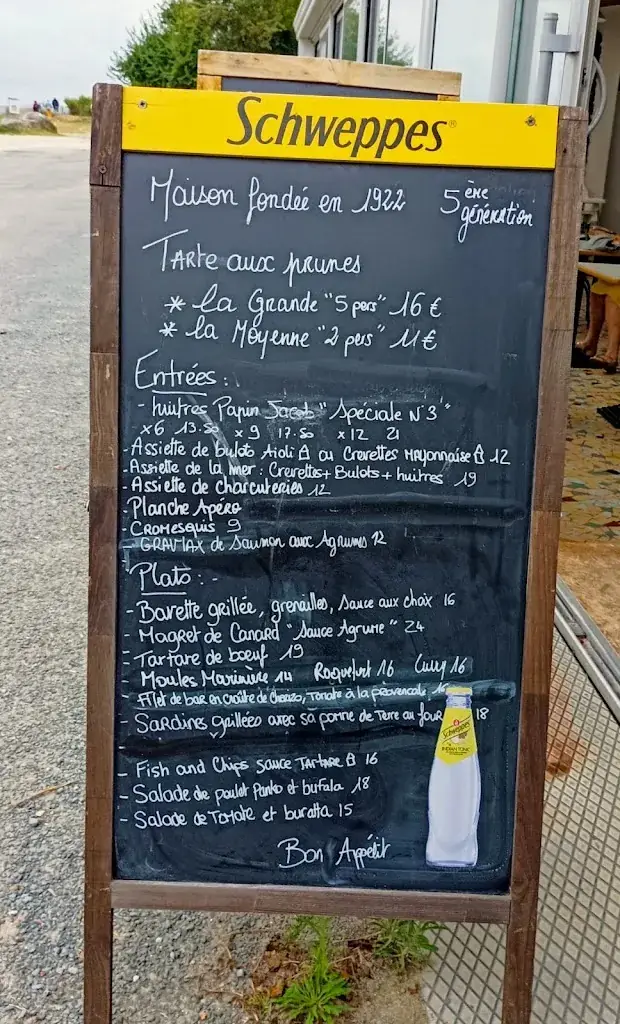 Schweppes
Maison fondée en 1922 5ère génération
Tarte aux prunes
* la Grande "5 pers" 16 €
* la Moyenne "2 pers" 11 €
Entrées :
- huitres Papin Jacob "Spéciale N°3"
x6 13.50 x9 17.50 x12 21
- Assiette de bulots Aioli ou Crevettes Mayonnaise 12
- Assiette de la mer : Crevettes + Bulots + huitres 19
- Assiette de charcuteries 12
- Planche Apéro
- Cromesquis 9
- GRAVLAX de Saumon aux Agrumes 12
Plats : -
- Bavette grillée, grenailles, sauce aux choix 16
- Magret de Canard "Sauce Agrume" 24
- Tartare de bœuf 19
- Moules Marinière 14 Roquefort 16 Curry 16
- Filet de bar en croûte de Chorizo, Tomate à la provencale,
- Sardines grillées avec sa pomme de Terre au four 18
-
- Fish and Chips Sauce Tartare 16
- Salade de poulet Panko et bufala 18
- Salade de Tomate et buratta 15
Bon Appétit
Schweppes
INDIAN TONIC